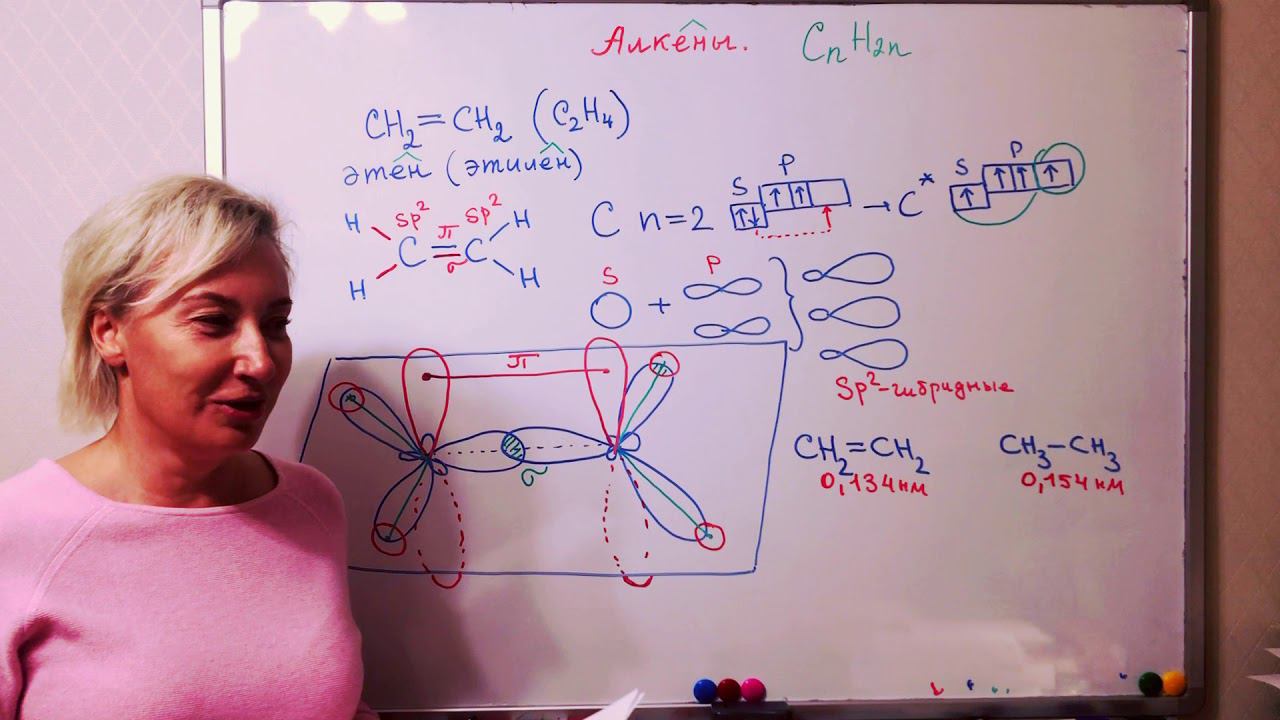 Алкены. CnH2n
CH2=CH2 (C2H4)
этен (этилен)
H Sp² Sp² H
π
C=C
σ
H H
C n=2 S ↑↓ P ↑ ↑ → C* S ↑ P ↑ ↑ ↑
S + P
Sp²-гибридные
π
σ
CH2=CH2 CH3-CH3
0,134нм 0,154нм